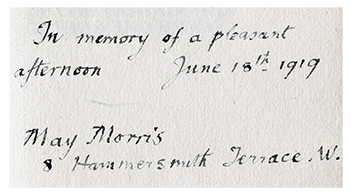 In memory of a pleasant
afternoon June 18th 1919
May Morris
8 Hammersmith Terrace. W.